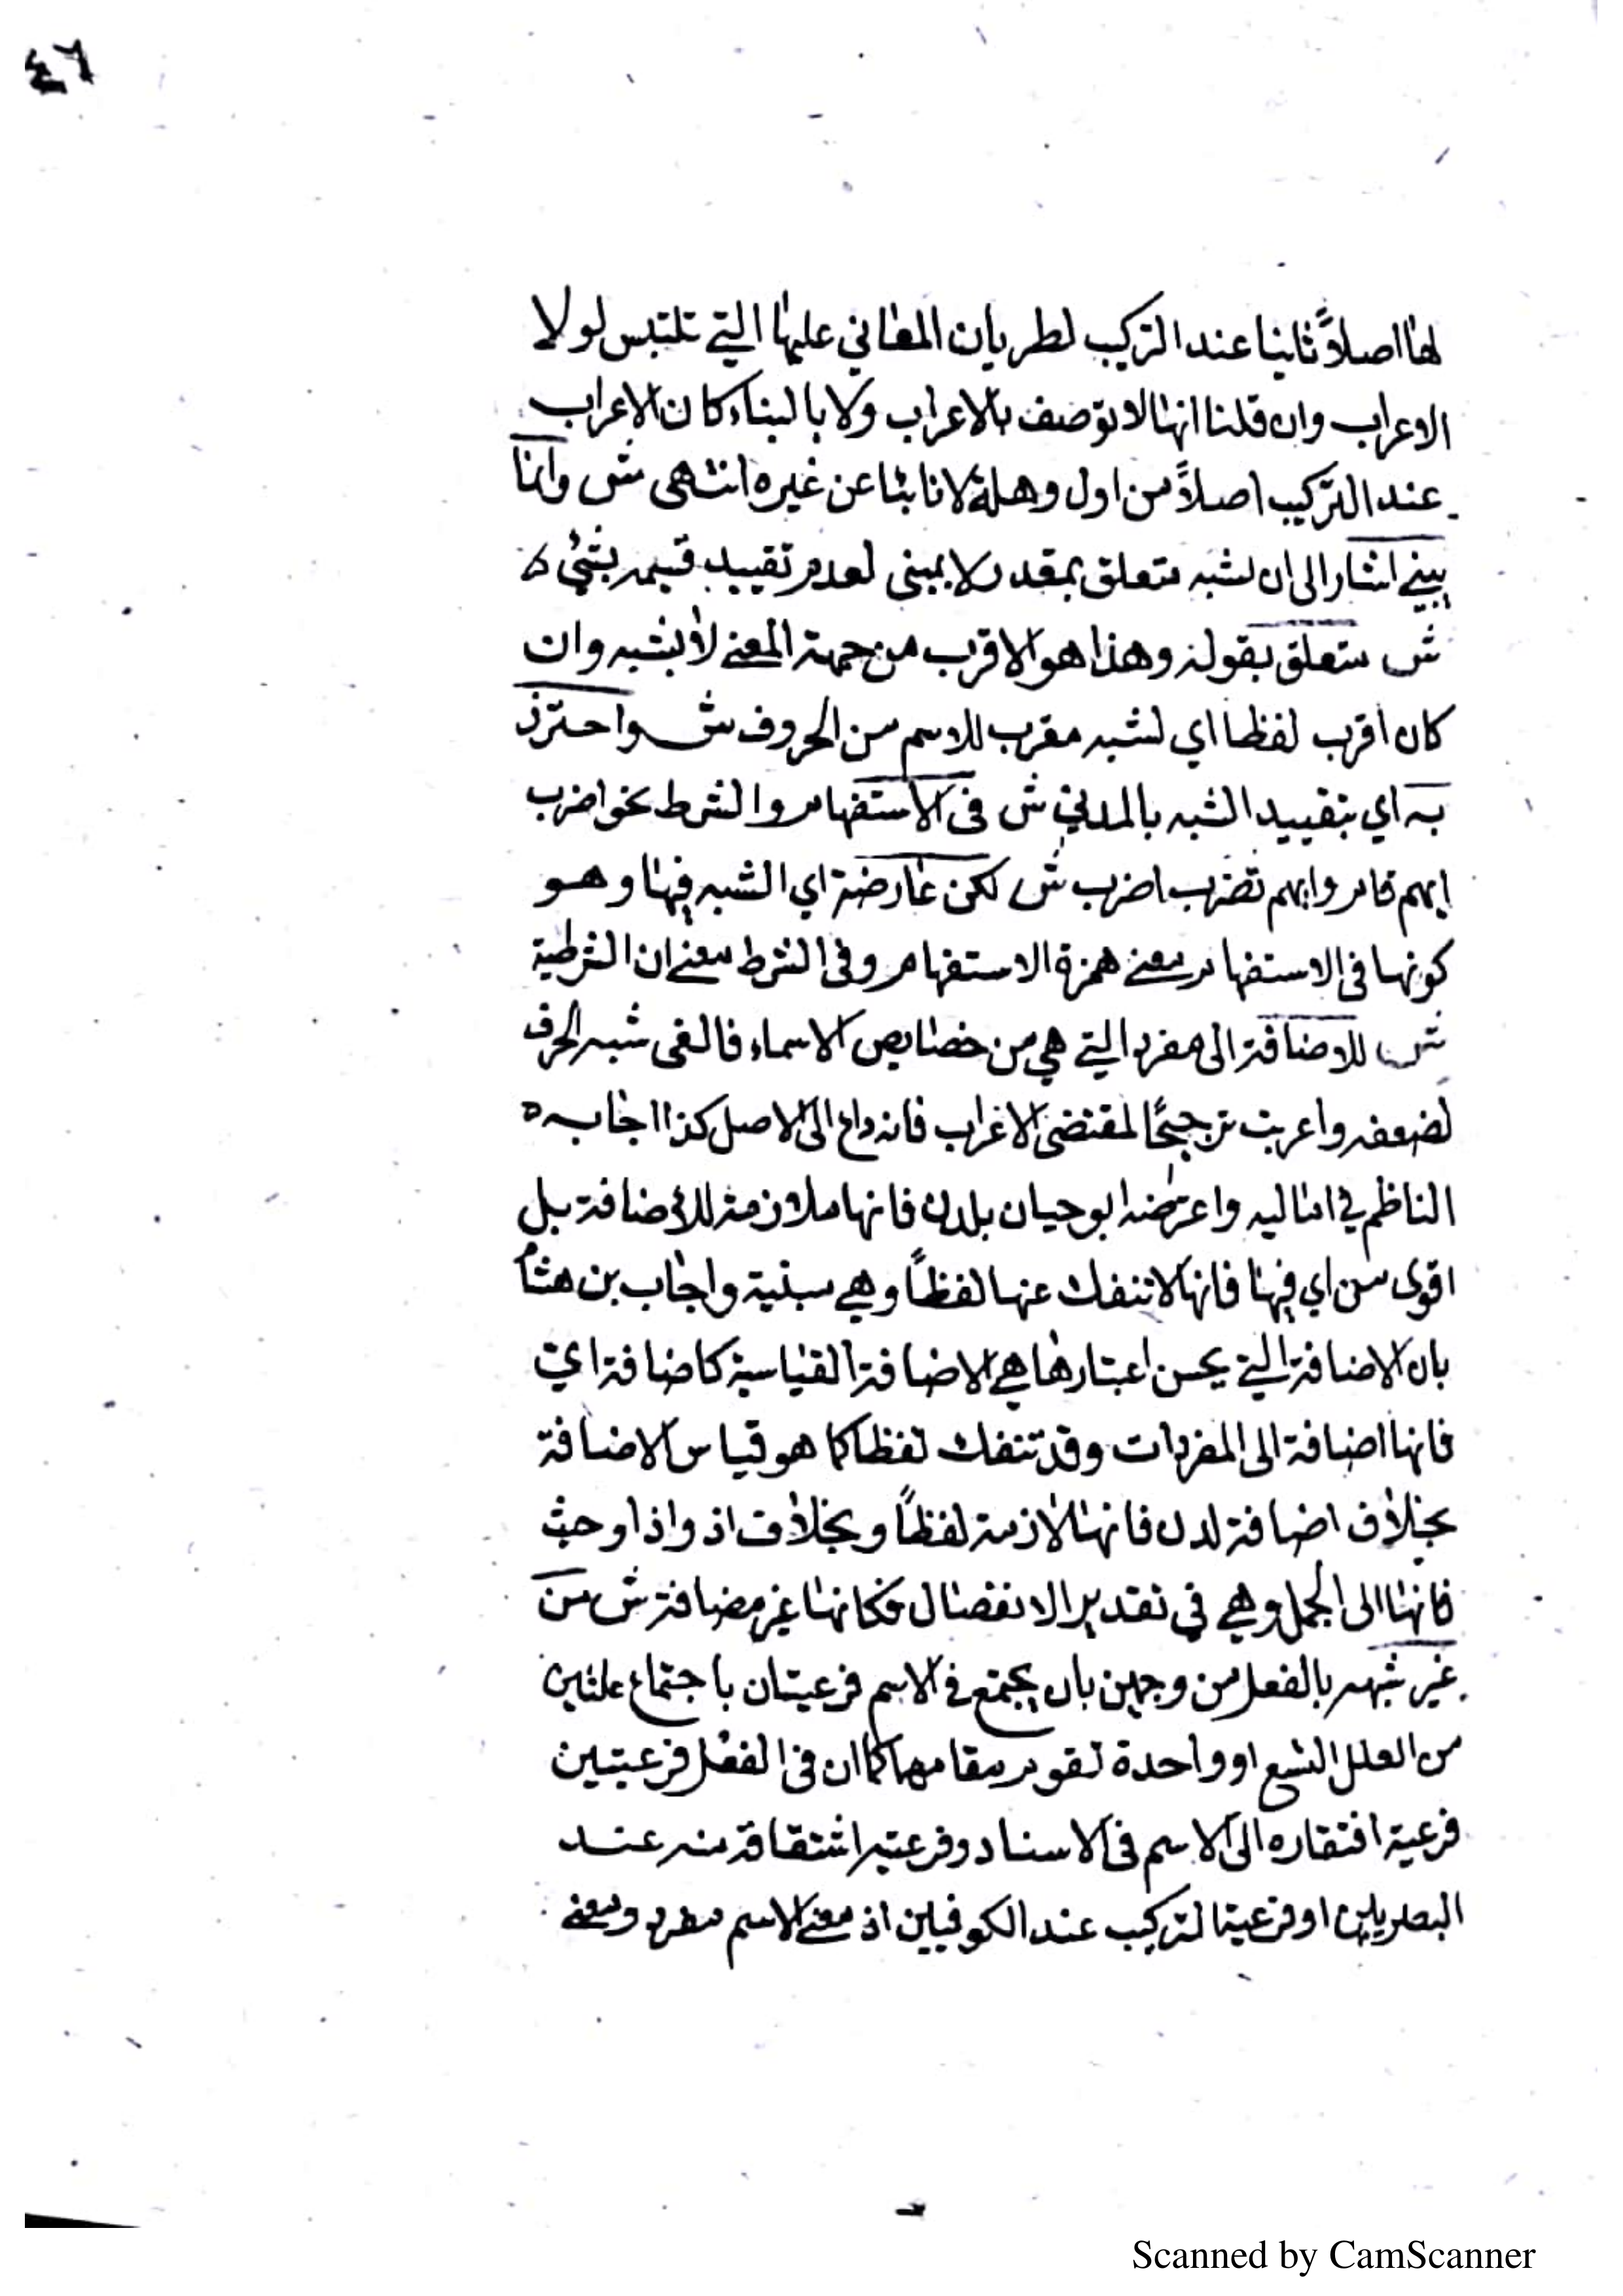 ٤٦
لها اصلاً ثانيا عند التركيب لطريان المعاني عليها التي تلتبس لولا
الاعراب وان قلنا انها لا توصف بالاعراب ولا بالبناء كان الاعراب
عند التركيب اصلاً من اول وهلة لا نائبا عن غيره انتهى ش وانما
يبني اشار الى ان لشبه متعلق بمقدر لا بمبني لعدم تقييد قسيمه بشئ
ش متعلق بقوله وهذا هو الاقرب من جهة المعني لا بشبه وان
كان اقرب لفظا اي لشبه مقرب للاسم من الحروف ش واحترز
به اي بتقييد الشبه بالمدني ش في الاستفهام والشرط نحو اضرب
ايهم قام وايهم تضرب اضرب ش لكن عارضة اي الشبه فيها وهو
كونها في الاستفهام معني همزة الاستفهام وفي الشرط معني ان الشرطية
ش للاضافة الى مفرد التي هي من خصايص الاسماء فالغى شبه الحرف
لضعفه واعربت ترجيحًا لمقتضى الاعراب فانه داع الى الاصل كذا اجاب به
الناظم في اماليه واعترضه ابو حيان بلدن فانها ملازمة للاضافة بل
اقوى من اي فيها فانها لا تنفك عنها لفظاً وهي مبنية واجاب بن هشام
بان الاضافة التي يحسن اعتبارها هي الاضافة القياسية كاضافة اي
فانها اضافة الى المفردات وقد تنفك لفظا كما هو قياس الاضافة
بخلاف اضافة لدن فانها لازمة لفظاً وبخلاف اذ واذا وحيث
فانها الى الجمل وهي في تقدير الانفصال فكانها غير مضافة ش من
غير شبهه بالفعل من وجهين بان يجتمع في الاسم فرعيتان باجتماع علتين
من العلل التسع او واحدة تقوم مقامهما كما ان في الفعل فرعيتين
فرعية افتقاره الى الاسم في الاسناد وفرعية اشتقاقة منه عند
البصريين او فرعية التركيب عند الكوفيين اذ معني الاسم مفرد ومعني
Scanned by CamScanner